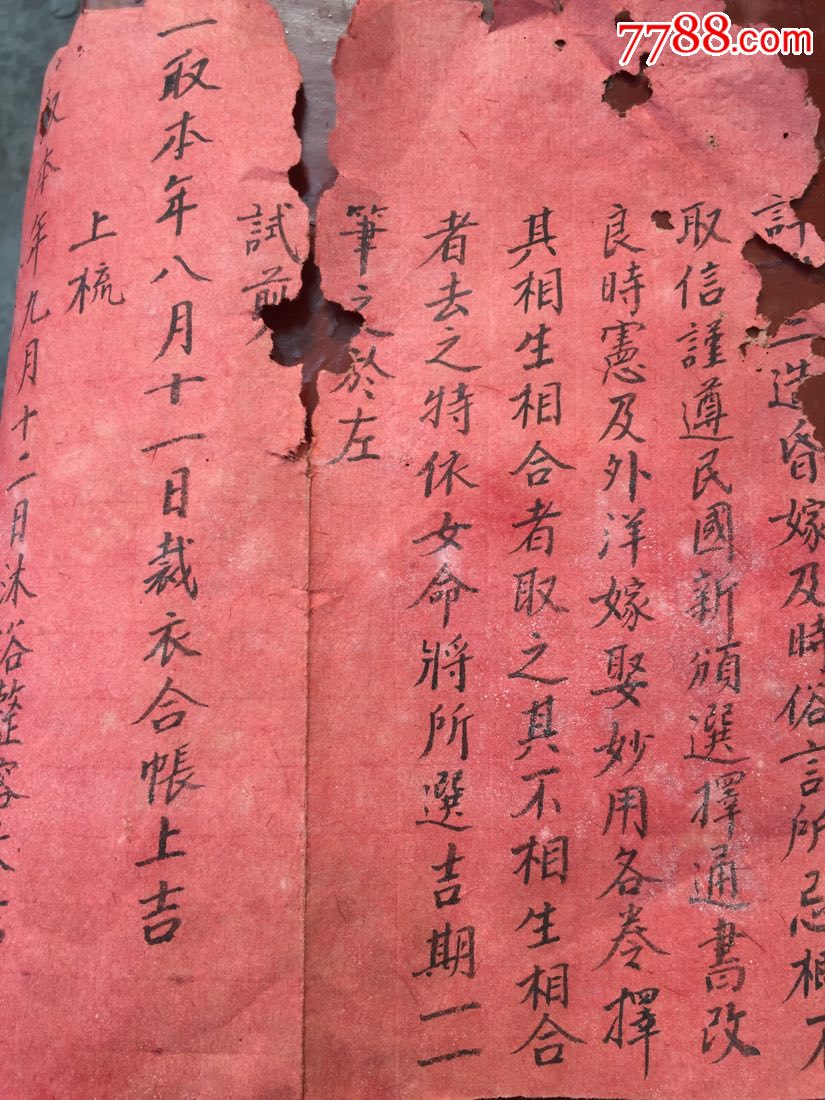 7788.com
訂二造昏嫁及時俗言所忌概不
取信謹遵民國新頒選擇通書改
良時憲及外洋嫁娶妙用各卷擇
其相生相合者取之其不相生相合
者去之特依女命將所選吉期一一
筆之於左
試剪
一取本年八月十一日裁衣合帳上吉
上梳
取本年九月十二日沐浴整容大吉